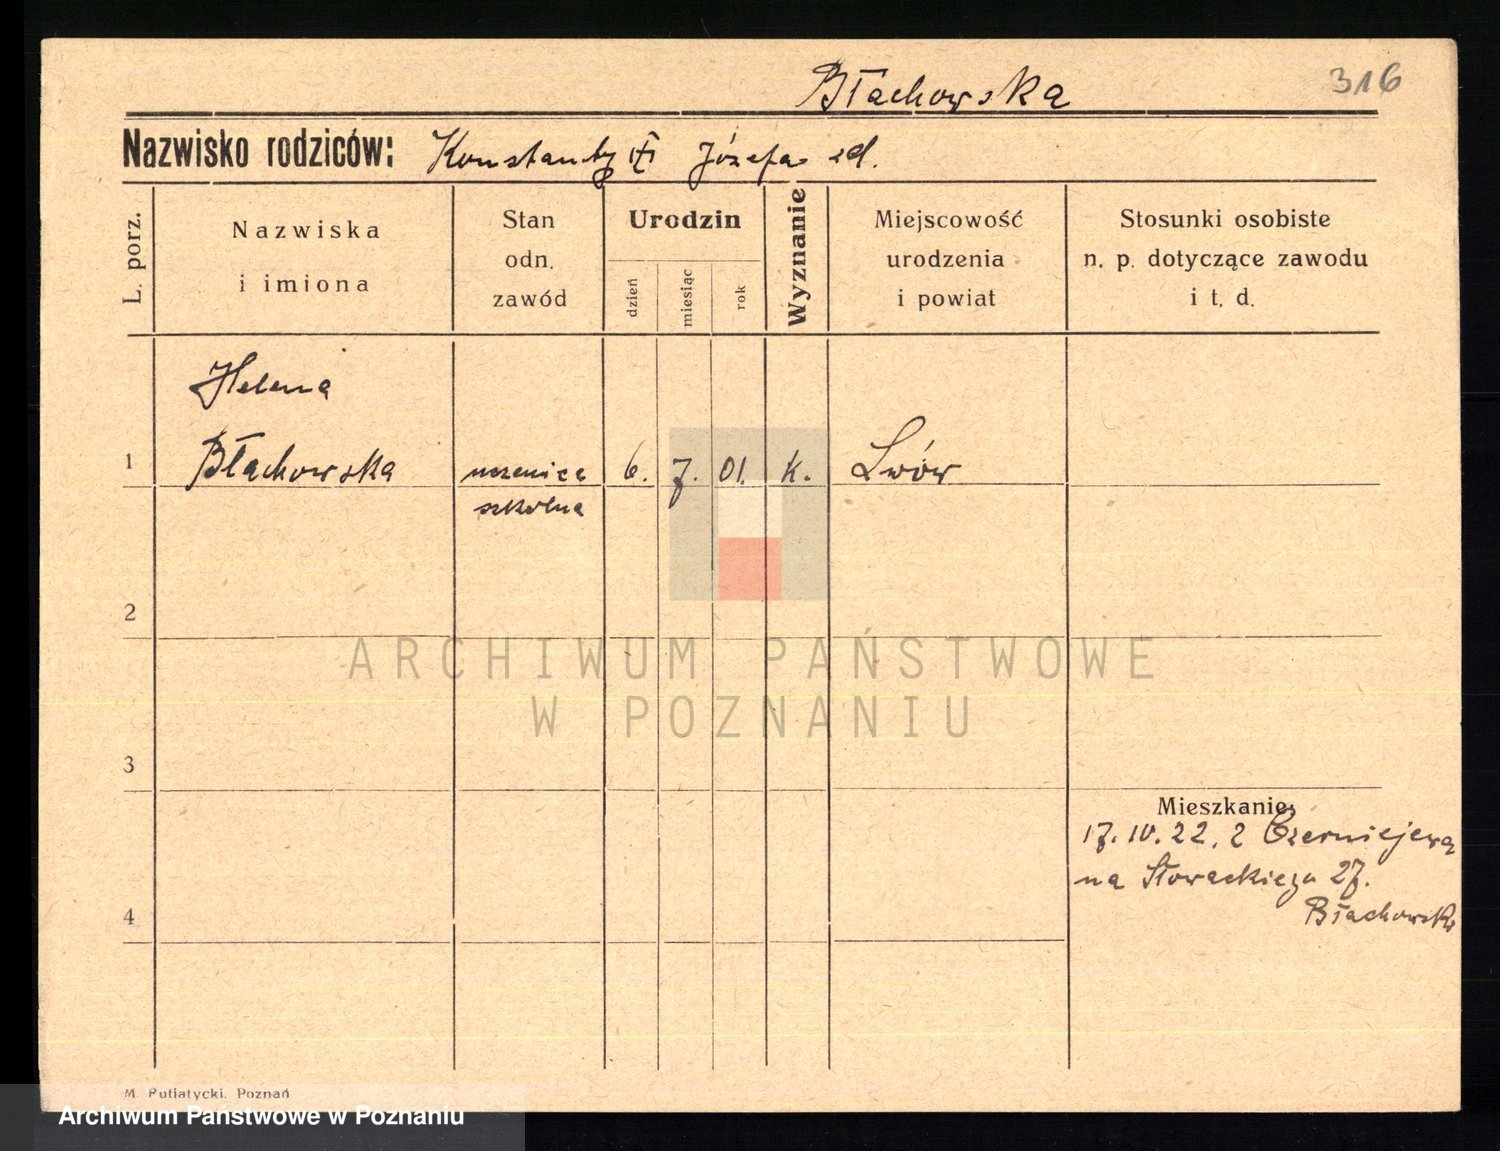 Błachowska
316
Nazwisko rodziców: Konstanty Józefa
L. porz.
Nazwiska
i imiona
Stan
odn.
zawód
Urodzin
dzień
miesiąc
rok
Wyznanie
Miejscowość
urodzenia
i powiat
Stosunki osobiste
n. p. dotyczące zawodu
i t. d.
Helena
1 Błachowska uczenica 6. 7. 01. k. Lwów
szkolna
2
ARCHIWUM PAŃSTWOWE
W POZNANIU
3
Mieszkanie:
17. 10. 22. z Czerniejewa
na Słowackiego 27.
4
Błachowska
M. Putiatycki, Poznań
Archiwum Państwowe w Poznaniu